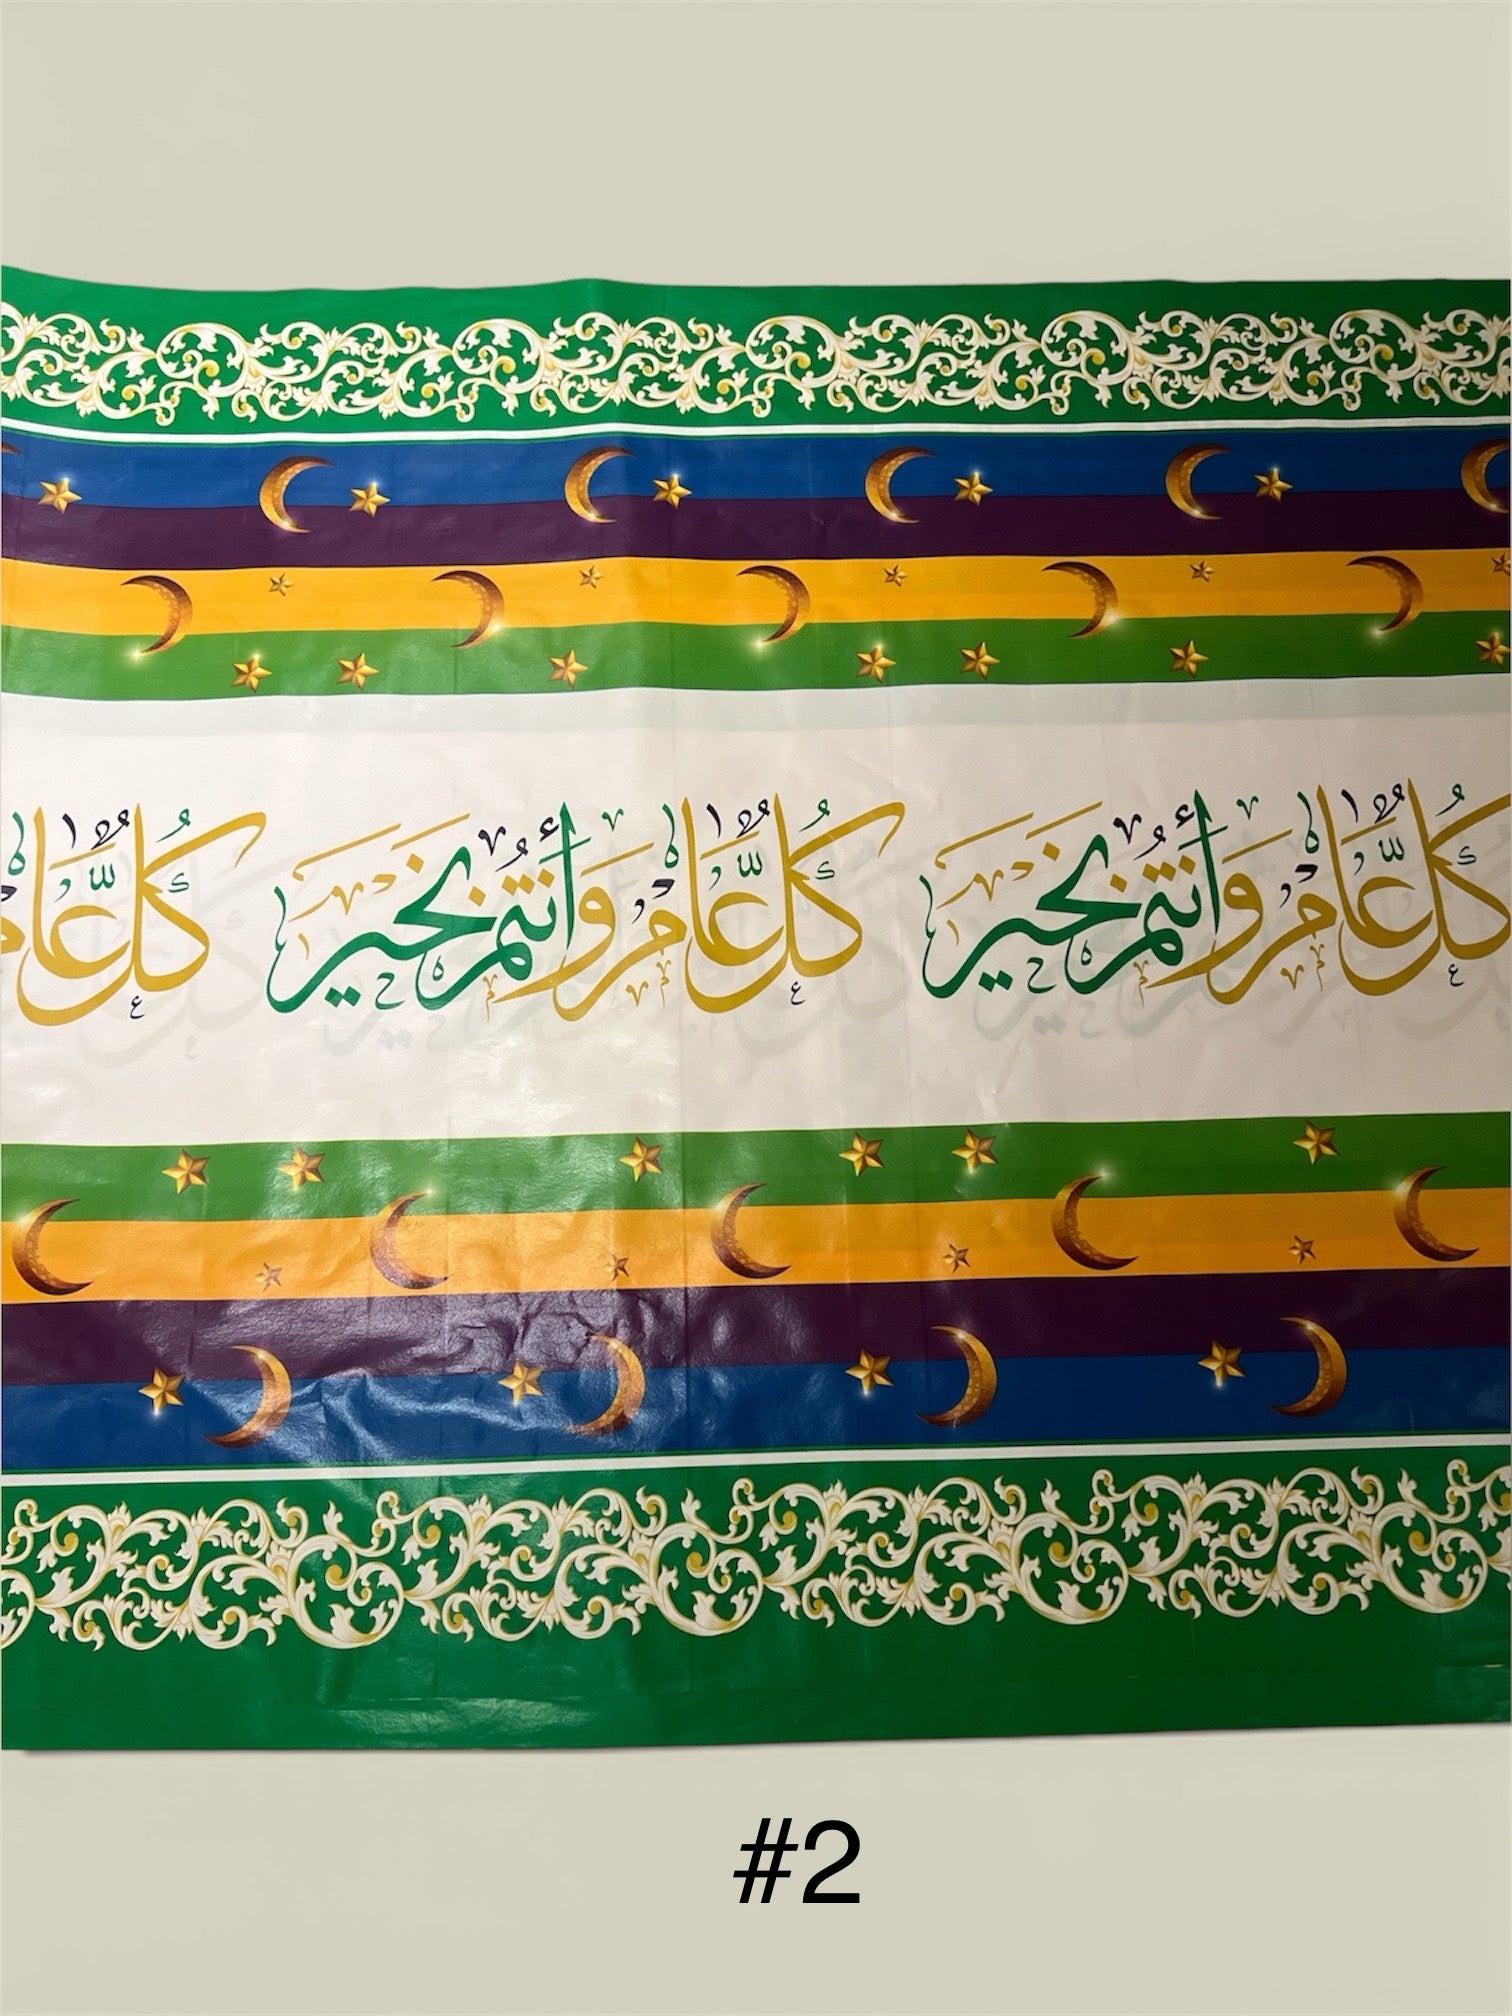 كُلُّ عَامٍ وَأَنْتُمْ بِخَيْر كُلُّ عَامٍ وَأَنْتُمْ بِخَيْر كُلُّ عَام
#2